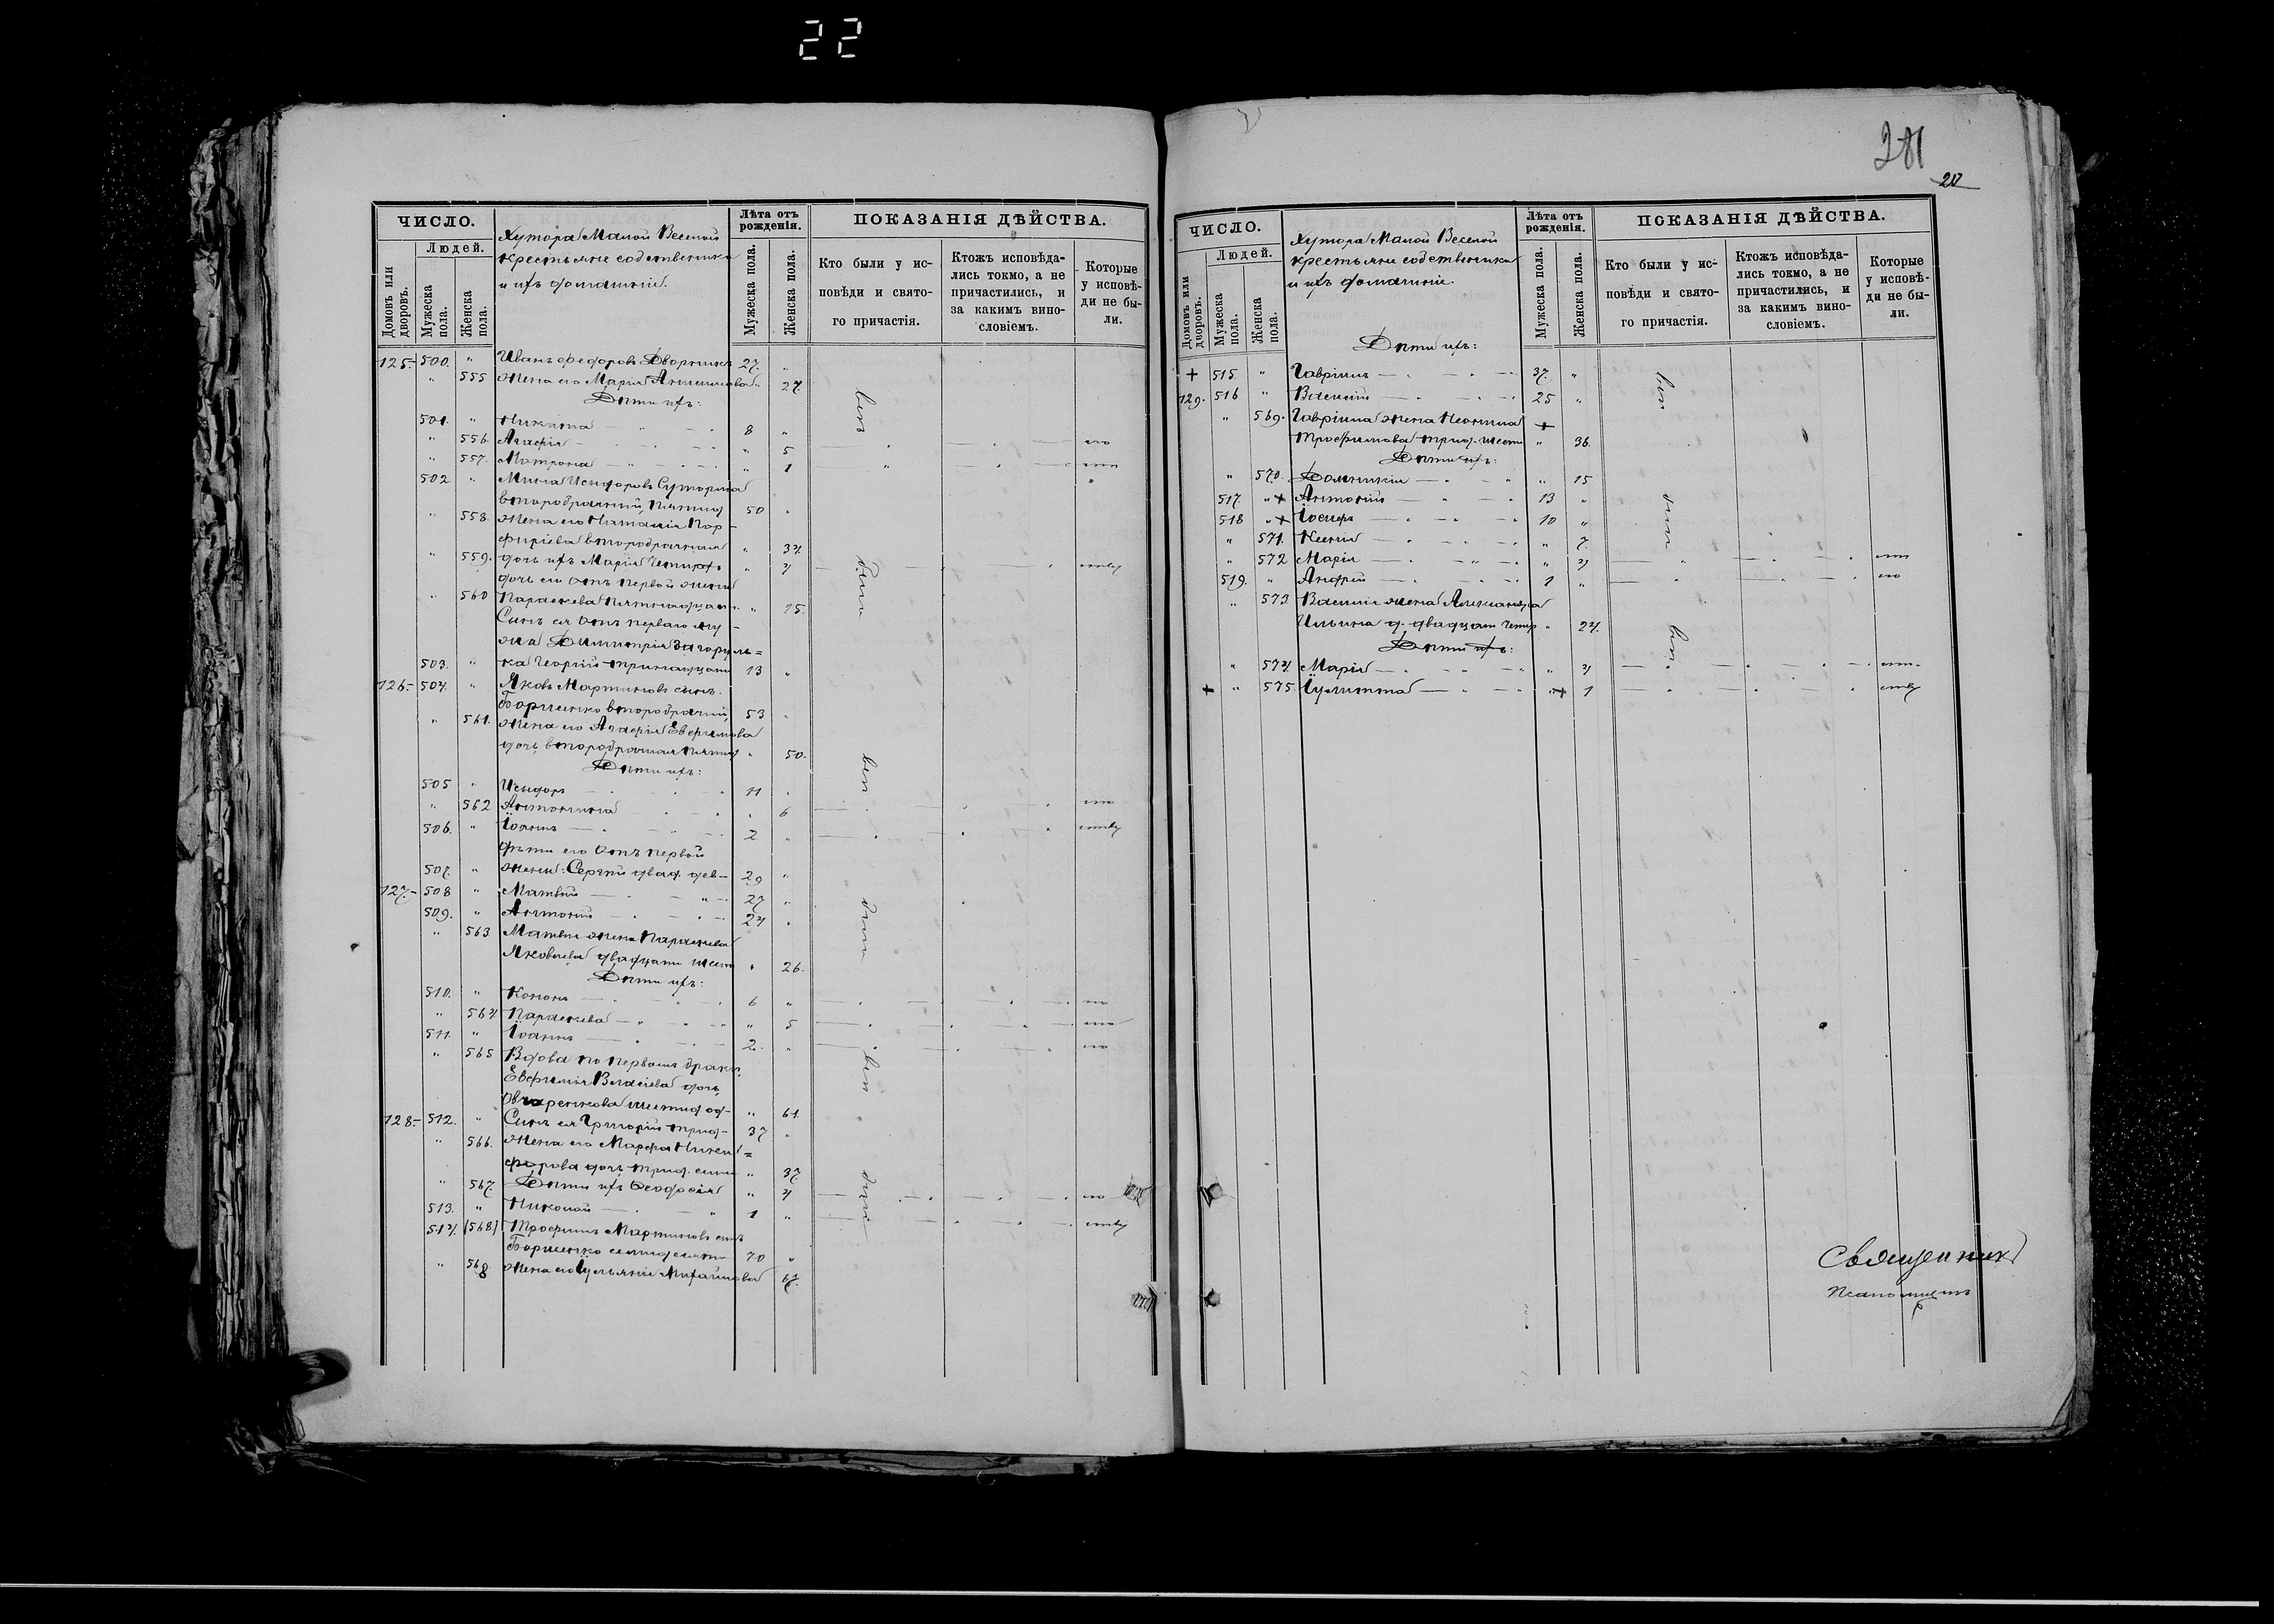 22
281
20
ЧИСЛО.
Людей.
Домовъ или дворовъ.
Мужеска пола.
Женска пола.
Хутора Малой Веселой
крестьяне собственники
и ихъ домашніе.
Лѣта отъ рожденія.
Мужеска пола.
Женска пола.
ПОКАЗАНІЯ ДѢЙСТВА.
Кто были у ис-
повѣди и свято-
го причастія.
Ктожъ исповѣда-
лись токмо, а не
причастились, и
за какимъ вино-
словіемъ.
Которые
у исповѣ-
ди не бы-
ли.
125. 500. " Иванъ Федоровъ Дворникъ 27. "
" 555 Жена его Марія 27.
Дѣти ихъ:
501. " Никита 8 "
" 556. Агафія " 5
" 557. Матрона " 1
502 " Мина Исидоровъ
второбрачный, пятид 50 "
" 558. Жена его Наталія Пор-
фиріева второбрачная " 34
" 559. дочь ихъ Марія " 4
дочь его отъ первой жены
" 560 Параскева пятнадцати " 15.
Сынъ ея отъ перваго му-
жа Димитрія Загоруль=
503. " ка Георгій тринадцати 13 "
126. 504. " Яковъ Мартиновъ сынъ.
Борщенко второбрачный, 53 "
" 561. Жена его Агафія Евфимова
дочь, второбрачная пятид " 50.
Дѣти ихъ:
505 " Исидоръ 11 "
" 562 Антонина " 6
506. " Іоаннъ 2 "
дѣти его отъ первой
507. " жены: Сергій двад. дев- 29 "
127. 508 " Матвѣй 27 "
509. " Антоній 24 "
" 563 Матвѣя жена Параскева
Яковлева двадцати шести " 26.
Дѣти ихъ:
510. " Кононъ 6 "
" 564 Параскева " 5
511. " Іоаннъ 2. "
" 565 Вдова по первомъ бракѣ
Евфимія Власіева дочь
Овчаренкова шестид од- " 61
128. 512. " Сынъ ея Григорій трид- 37 "
" 566. Жена его Марфа Ники=
форова дочь трид. семи " 37
" 567. Дѣти ихъ Феодосія " 4
513. " Николай 1 "
514. (568) Трофимъ Мартиновъ сынъ
Борщенко семидесяти 70 "
" 568 Жена его Іуліанія Михайлова 67.
ЧИСЛО.
Людей.
Домовъ или дворовъ.
Мужеска пола.
Женска пола.
Хутора Малой Веселой
крестьяне собственники
и ихъ домашніе.
Лѣта отъ рожденія.
Мужеска пола.
Женска пола.
ПОКАЗАНІЯ ДѢЙСТВА.
Кто были у ис-
повѣди и свято-
го причастія.
Ктожъ исповѣда-
лись токмо, а не
причастились, и
за какимъ вино-
словіемъ.
Которые
у исповѣ-
ди не бы-
ли.
Дѣти ихъ:
+ 515 " Гавріилъ 37. "
129. 516 " Василій 25 "
" 569. Гавріила жена Неонила +
Трофимова трид. шести " 36.
Дѣти ихъ:
" 570. Домникія " 15
517. "+ Антоній 13 "
518 "+ Іосифъ 10 "
" 571. Ксенія " 7.
" 572 Марія " 4
519. " Андрей 1 "
" 573 Василія жена Александра
Ильина д. двадцати четыр " 24.
Дѣти ихъ:
" 574 Марія " 4
+ " 575. Іулитта "+ 1
Священникъ
Псаломщикъ